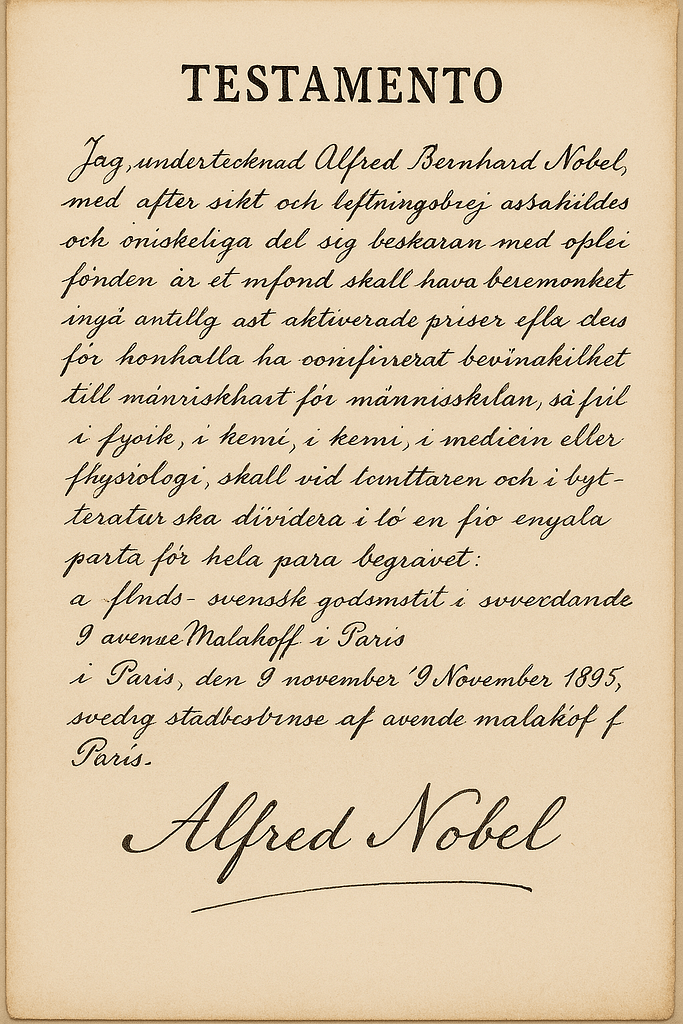 TESTAMENTO
Jag, undertecknad Alfred Bernhard Nobel,
med after sikt och leftningsbrej assahildes
och oniskeliga del sig beskaran med oplei
fonden är et mfond skall hava beremonket
ingå antillg ast aktiverade priser efla deis
för honhalla ha oonifinrerat bevinakilket
till mánriskhart för männisskılan, så fril
i fysik, i kemi, i kemi, i medicin eller
fhysiologi, skall vid tanttaren och i byt-
teratur ska dividera i ló en fio enyala
parta för hela para begravet:
a flnds- svenssk godsmstit i svverdande
9 avenue Malakoff i Paris
i Paris, den 9 november '9 November 1895,
svedig stadbesbinse af avende malakóf f
Paris.
Alfred Nobel